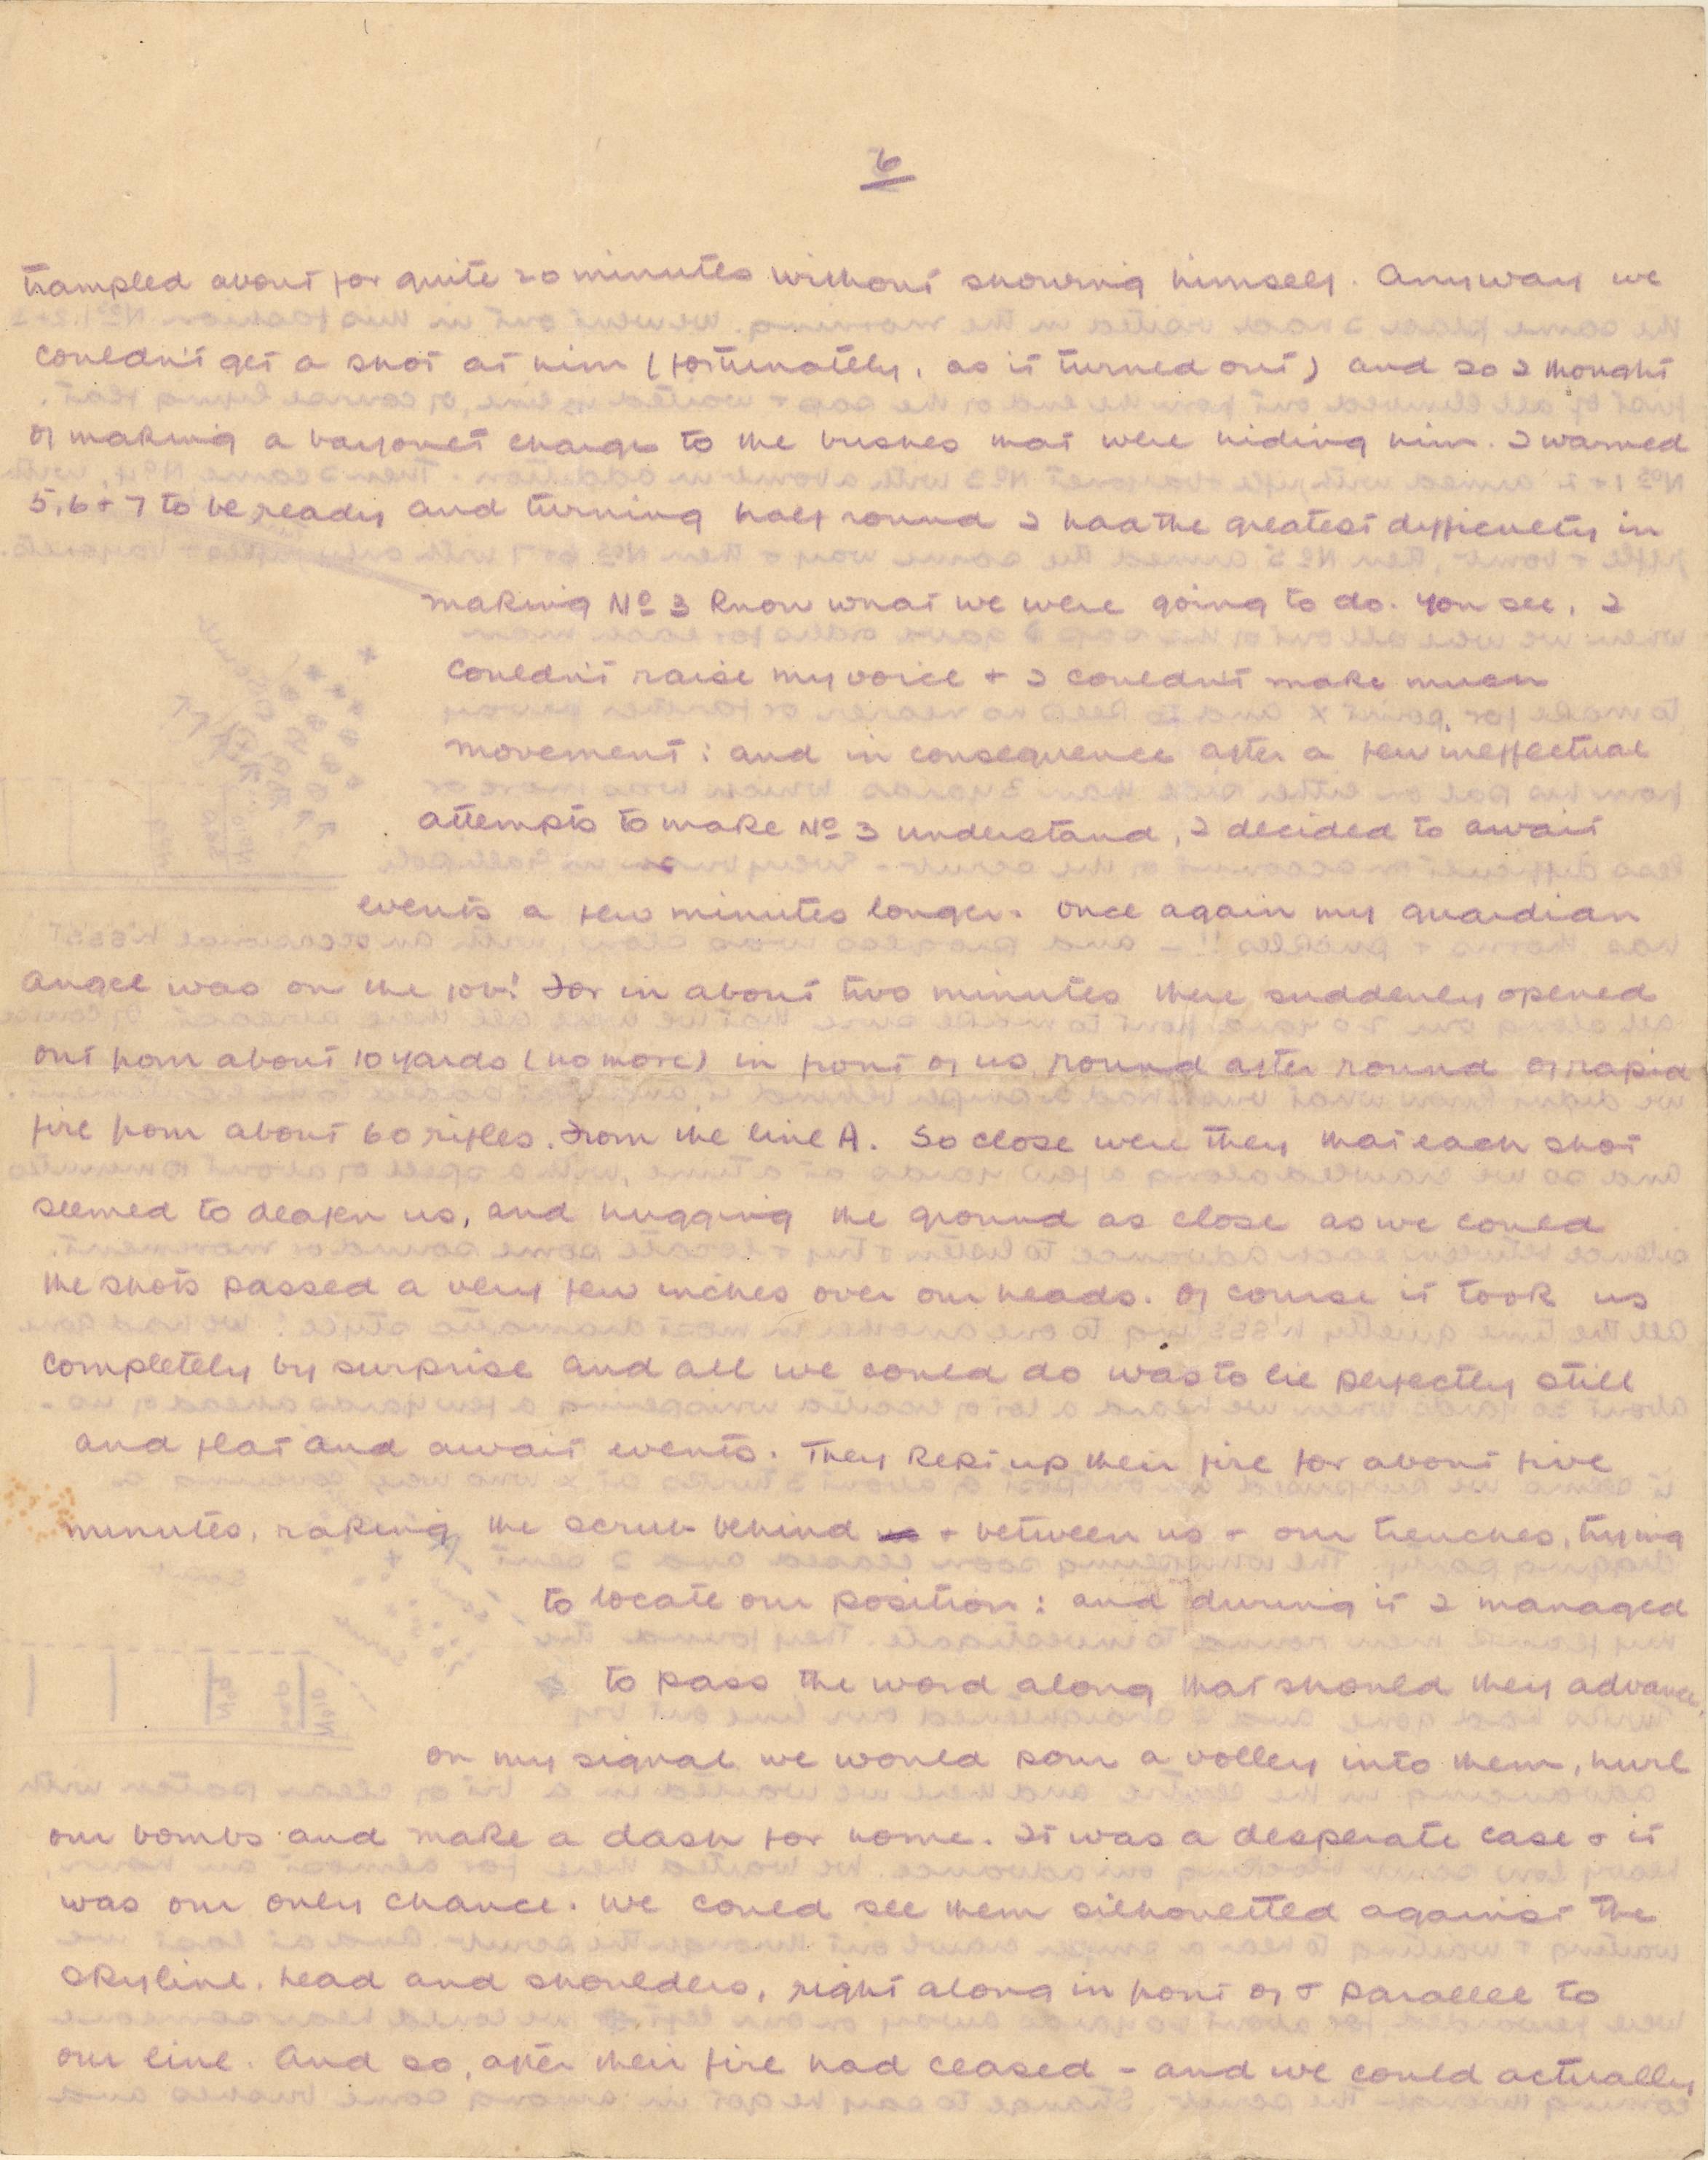 6
trampled about for quite 20 minutes without showing himself. Anyway we
couldn't get a shot at him (fortunately, as it turned out) and so I thought
of making a bayonet charge to the bushes that were hiding him. I warned
5, 6 + 7 to be ready and turning half round I had the greatest difficulty in
making No 3 know what we were going to do. You see, I
couldn't raise my voice + I couldn't make much
movement: and in consequence after a few ineffectual
attempts to make No 3 understand, I decided to await
events a few minutes longer. Once again my guardian
angel was on the job! For in about two minutes there suddenly opened
out from about 10 yards (no more) in front of us round after round of rapid
fire from about 60 rifles. From the line A. So close were they that each shot
seemed to deafen us, and hugging the ground as close as we could
the shots passed a very few inches over our heads. Of course it took us
completely by surprise and all we could do was to lie perfectly still
and flat and await events. They kept up their fire for about five
minutes, raking the scrub behind us + between us + our trenches, trying
to locate our position: and during it I managed
to pass the word along that should they advance,
on my signal we would pour a volley into them, hurl
our bombs and make a dash for home. It was a desperate case + it
was our only chance. We could see them silhouetted against the
skyline. head and shoulders, right along in front of + parallel to
our line. And so, after their fire had ceased - and we could actually